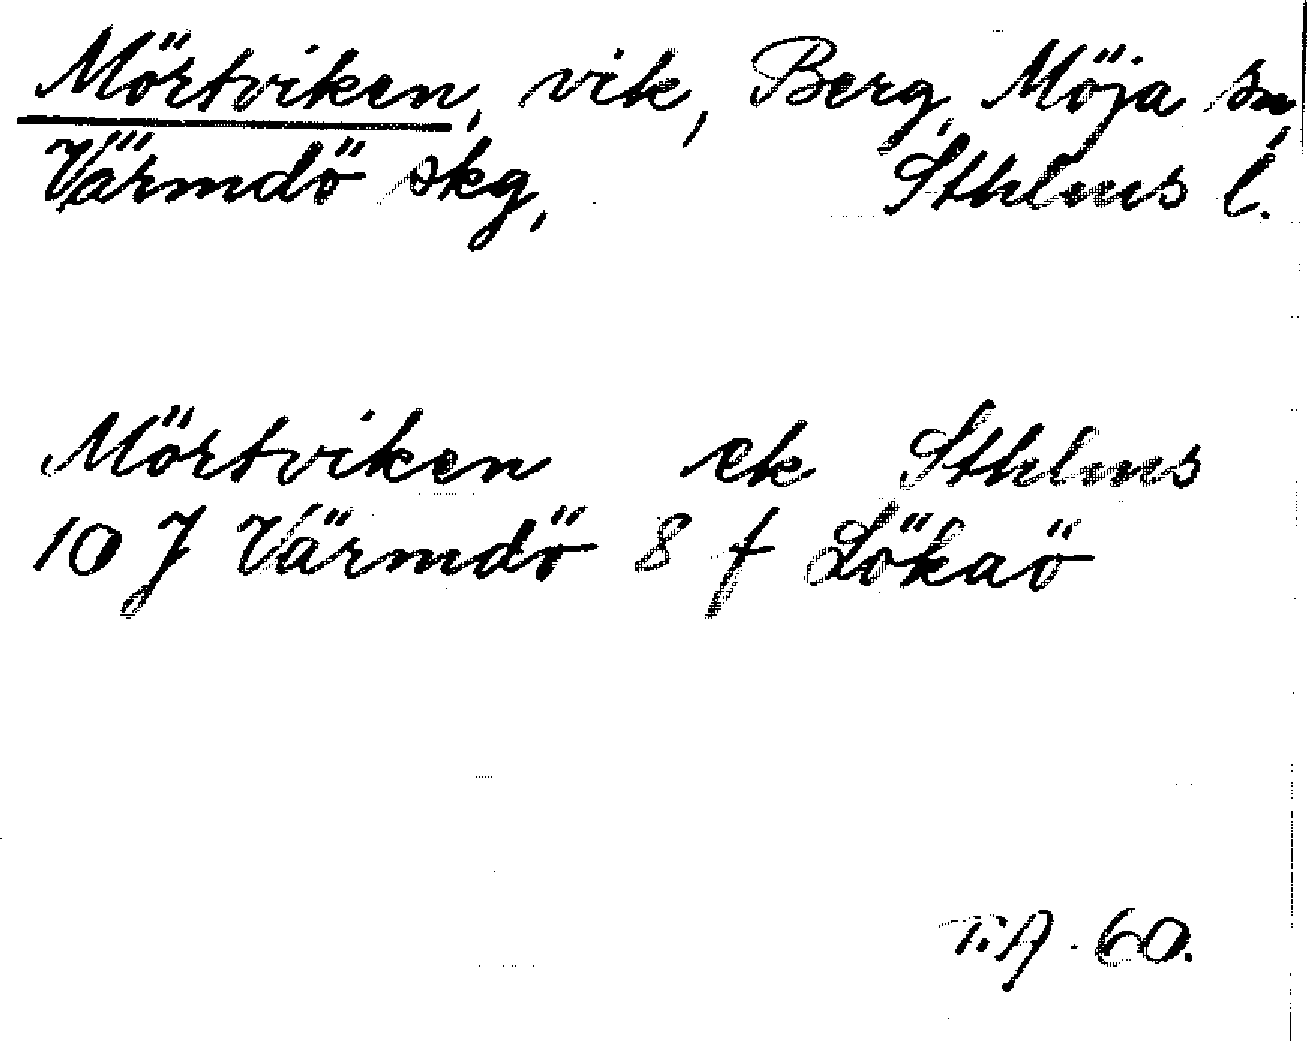 Mörtviken, vik, Berg, Möja sn,
Värmdö skg, Sthlms l.
Mörtviken ek Sthlms
10 J Värmdö 8 f Lökaö
T.A. 60.